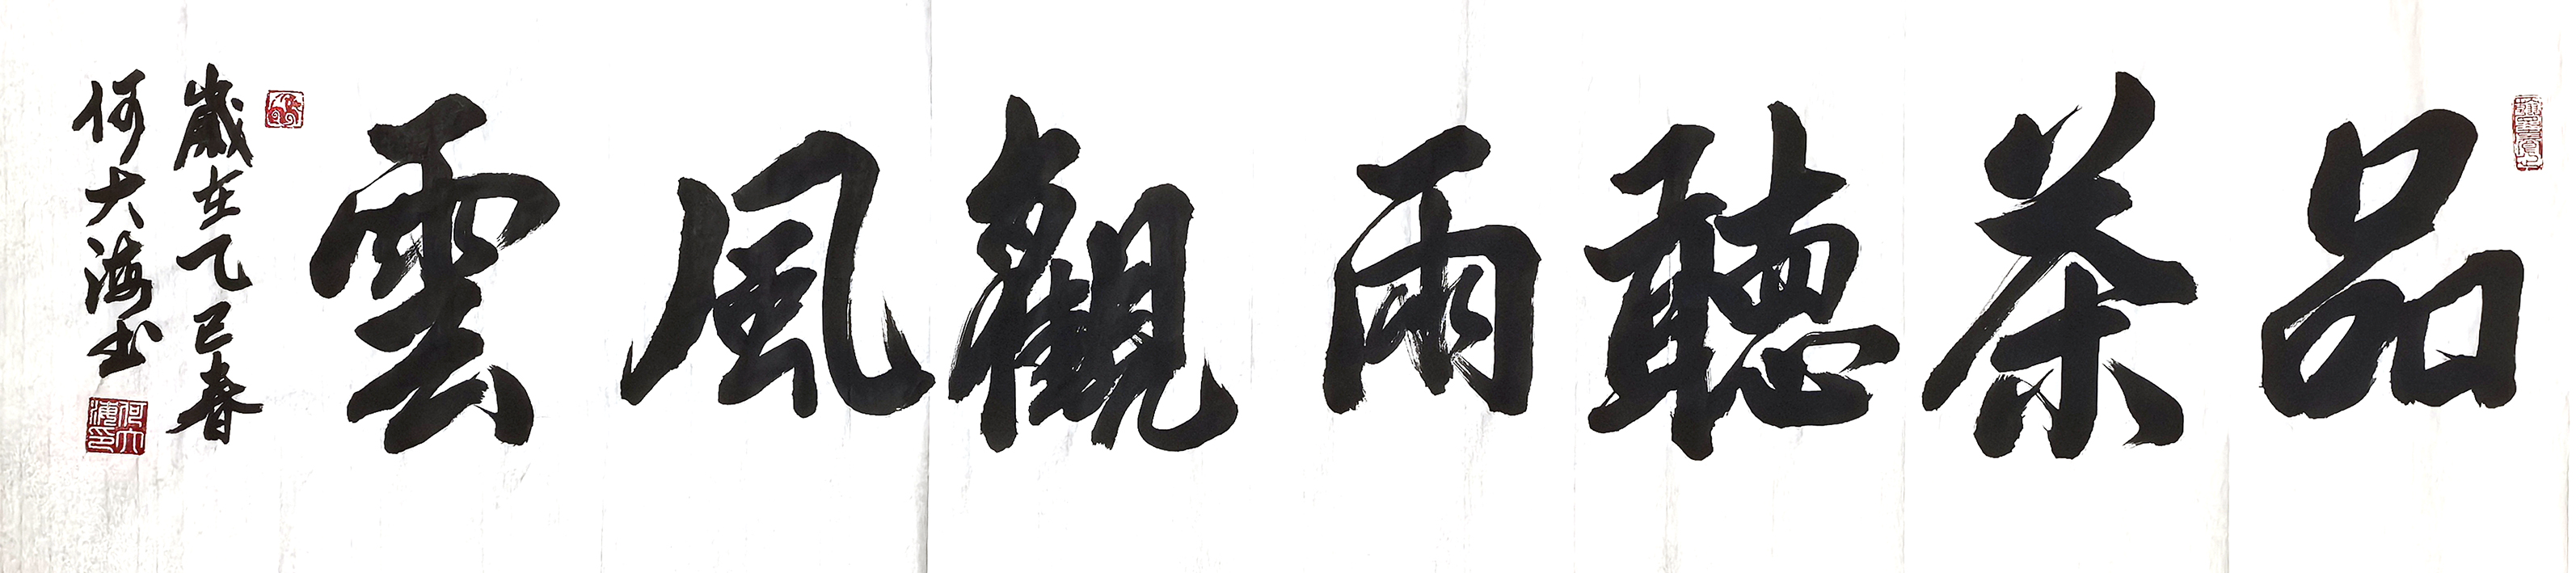 品茶聽雨觀風雲
歲在乙巳春
何大海书
何大海印